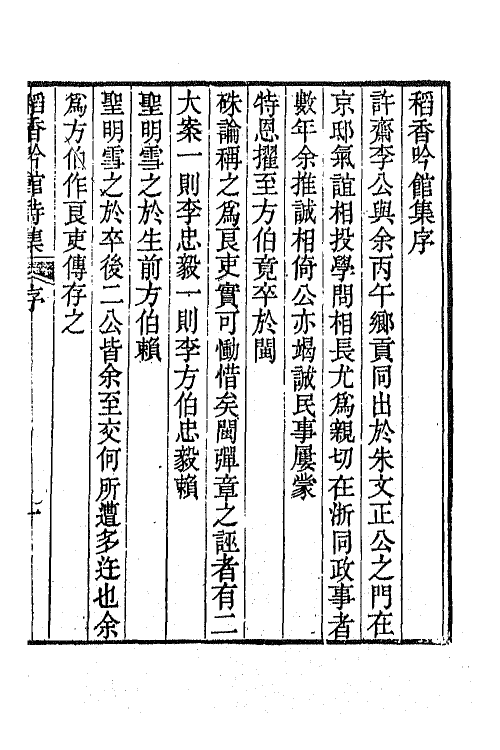 稻香吟館集序
許齋李公與余丙午鄉貢同出於朱文正公之門在
京邸氣誼相投學問相長尤爲親切在浙同政事者
數年余推誠相倚公亦竭誠民事屢蒙
特恩擢至方伯竟卒於閩
硃論稱之爲良吏實可慟惜矣閩彈章之誣者有二
大案一則李忠毅一則李方伯忠毅賴
聖明雪之於生前方伯賴
聖明雪之於卒後二公皆余至交何所遭多迕也余
爲方伯作良吏傳存之
稻香吟館詩集 序 一